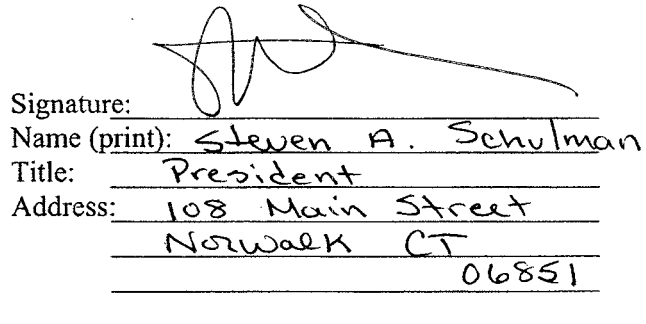 Signature:
Name (print): Steven A. Schulman
Title: President
Address: 108 Main Street
Norwalk CT
06851